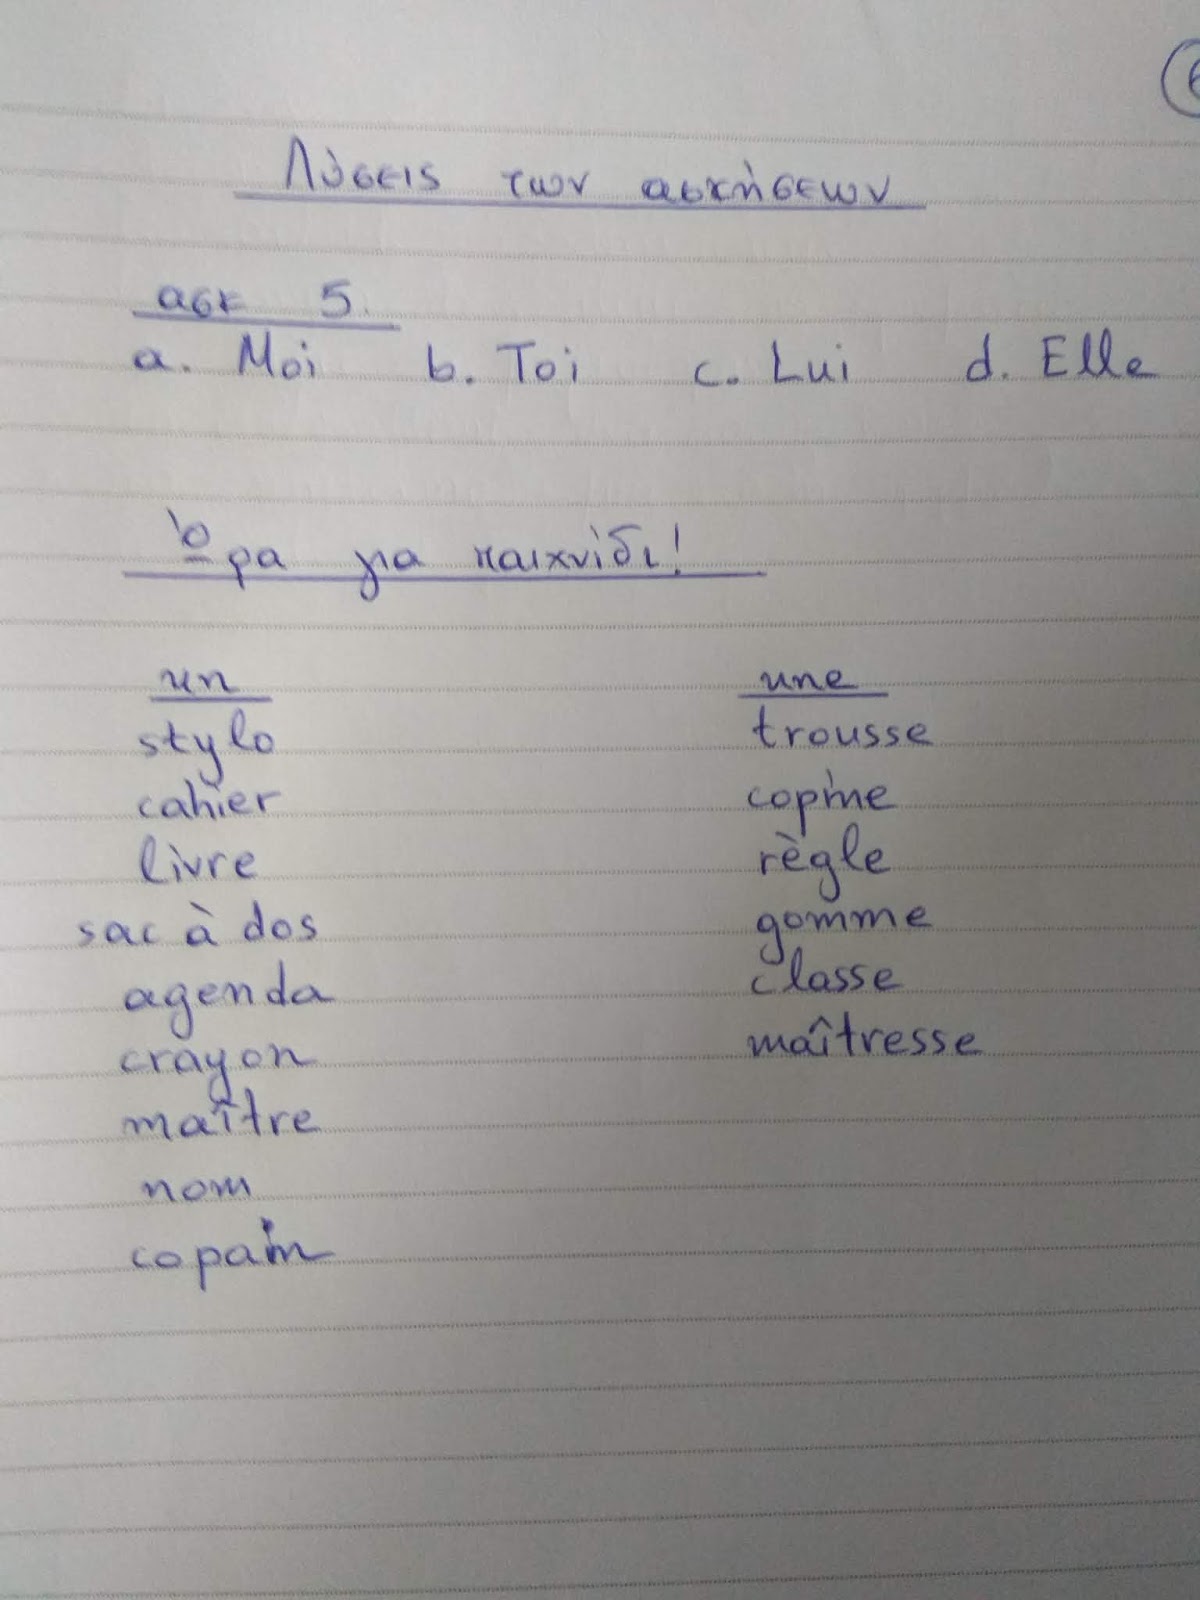 Λύσεις των ασκήσεων
ασκ 5.
a. Moi b. Toi c. Lui d. Elle
Ώρα για παιχνίδι!
un une
stylo trousse
cahier copine
livre règle
sac à dos gomme
agenda classe
crayon maîtresse
maître
nom
copain